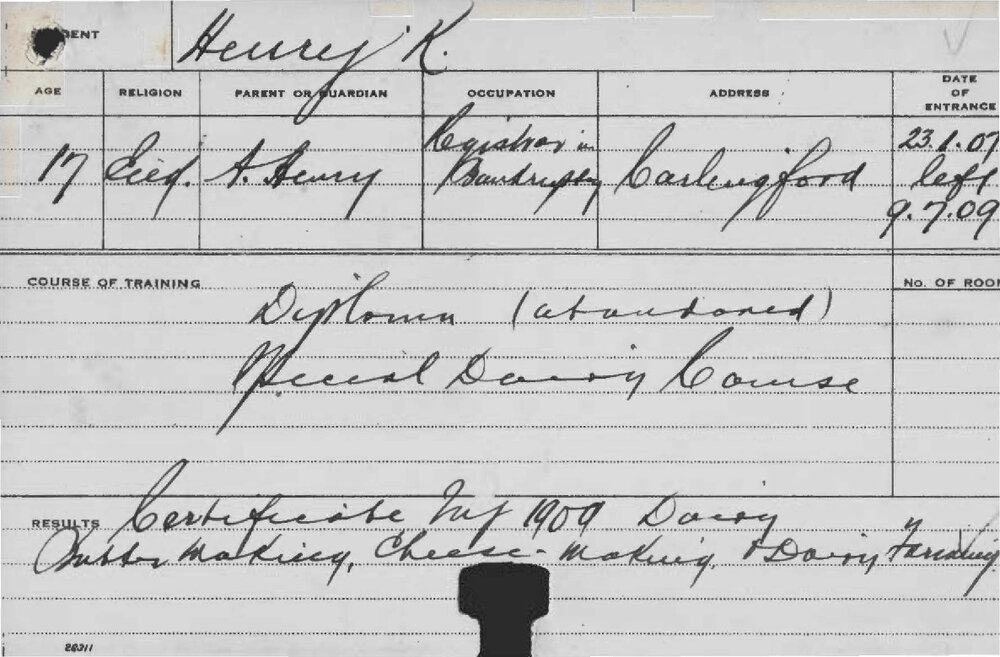 DENT Henry K.
AGE RELIGION PARENT OR GUARDIAN OCCUPATION ADDRESS DATE OF ENTRANCE
17 A. Henry Registrar in Bankruptcy Carlingford 23.1.07
left
9.7.09
COURSE OF TRAINING No. OF ROOM
Diploma (abandoned)
Special Dairy Course
RESULTS Certificate 1909 Dairy
Butter Making, Cheese-Making & Dairy Farming
26311